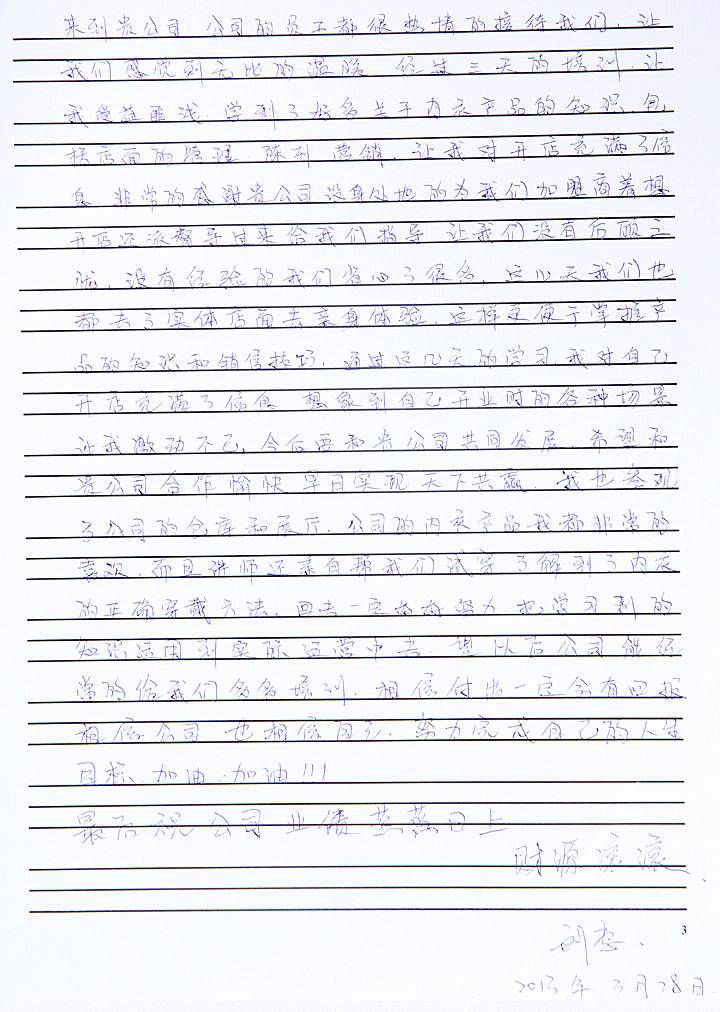 来到贵公司 公司的员工都很热情的接待我们，让
我们感觉到无比的温暖 经过三天的培训，让
我受益匪浅 学到了好多关于内衣产品的知识 包
括店面的管理，陈列 营销，让我对开店充满了信
息，非常的感谢贵公司设身处地的为我们加盟商着想
开店还派督导过来给我们指导 让我们没有后顾之
忧，没有经验的我们省心了很多，这几天我们也
都去了实体店面去亲身体验，这样更便于掌握产
品的知识和销售技巧，通过这几天的学习，我对自己
开店充满了信息 想象到自己开业时的各种场景
让我激动不已，今后要和贵公司共同发展，希望和
贵公司合作愉快 早日实现天下共赢，我也参观
了公司的仓库和展厅，公司的内衣产品我都非常的
喜欢，而且讲师还亲自帮我们试穿 了解到了内衣
的正确穿戴方法，回去一定好好努力，把学习到的
知识运用到实际运营中去 望以后公司能经
常的给我们多多培训，相信付出一定会有回报
相信公司 也相信自己，努力完成自己的人生
目标，加油，加油!!!
最后祝公司业绩蒸蒸日上
财源滚滚
3
刘想.
2013年3月28日.